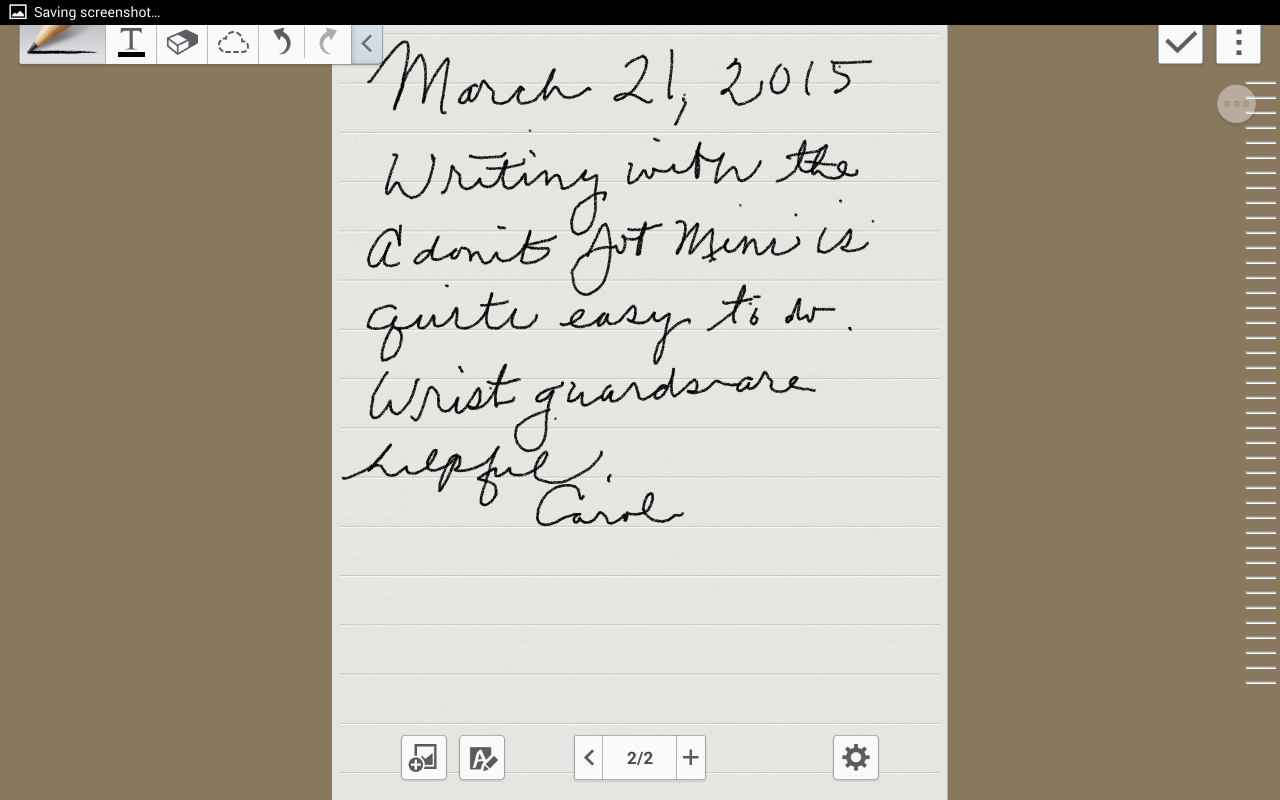 Saving screenshot...
T
March 21, 2015
Writing with the
Adonit Jot Mini is
quite easy to do.
Wrist guards are
helpful.
Carol
A
2/2